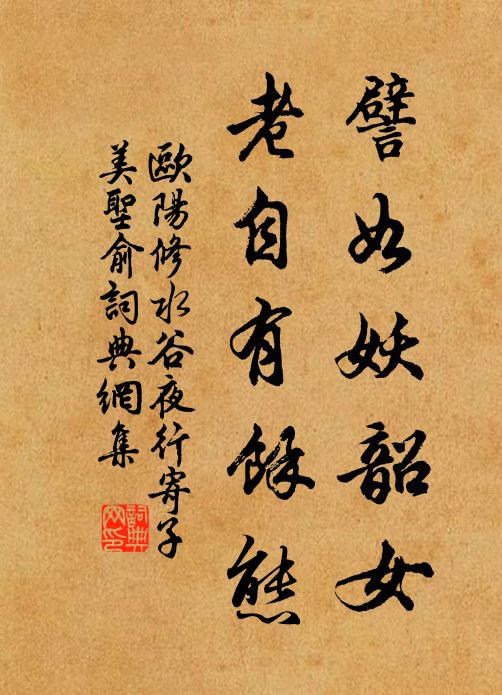 譬如妖韶女
老自有餘態
歐陽修水谷夜行寄子
美聖俞詞典網集
詞典
网印